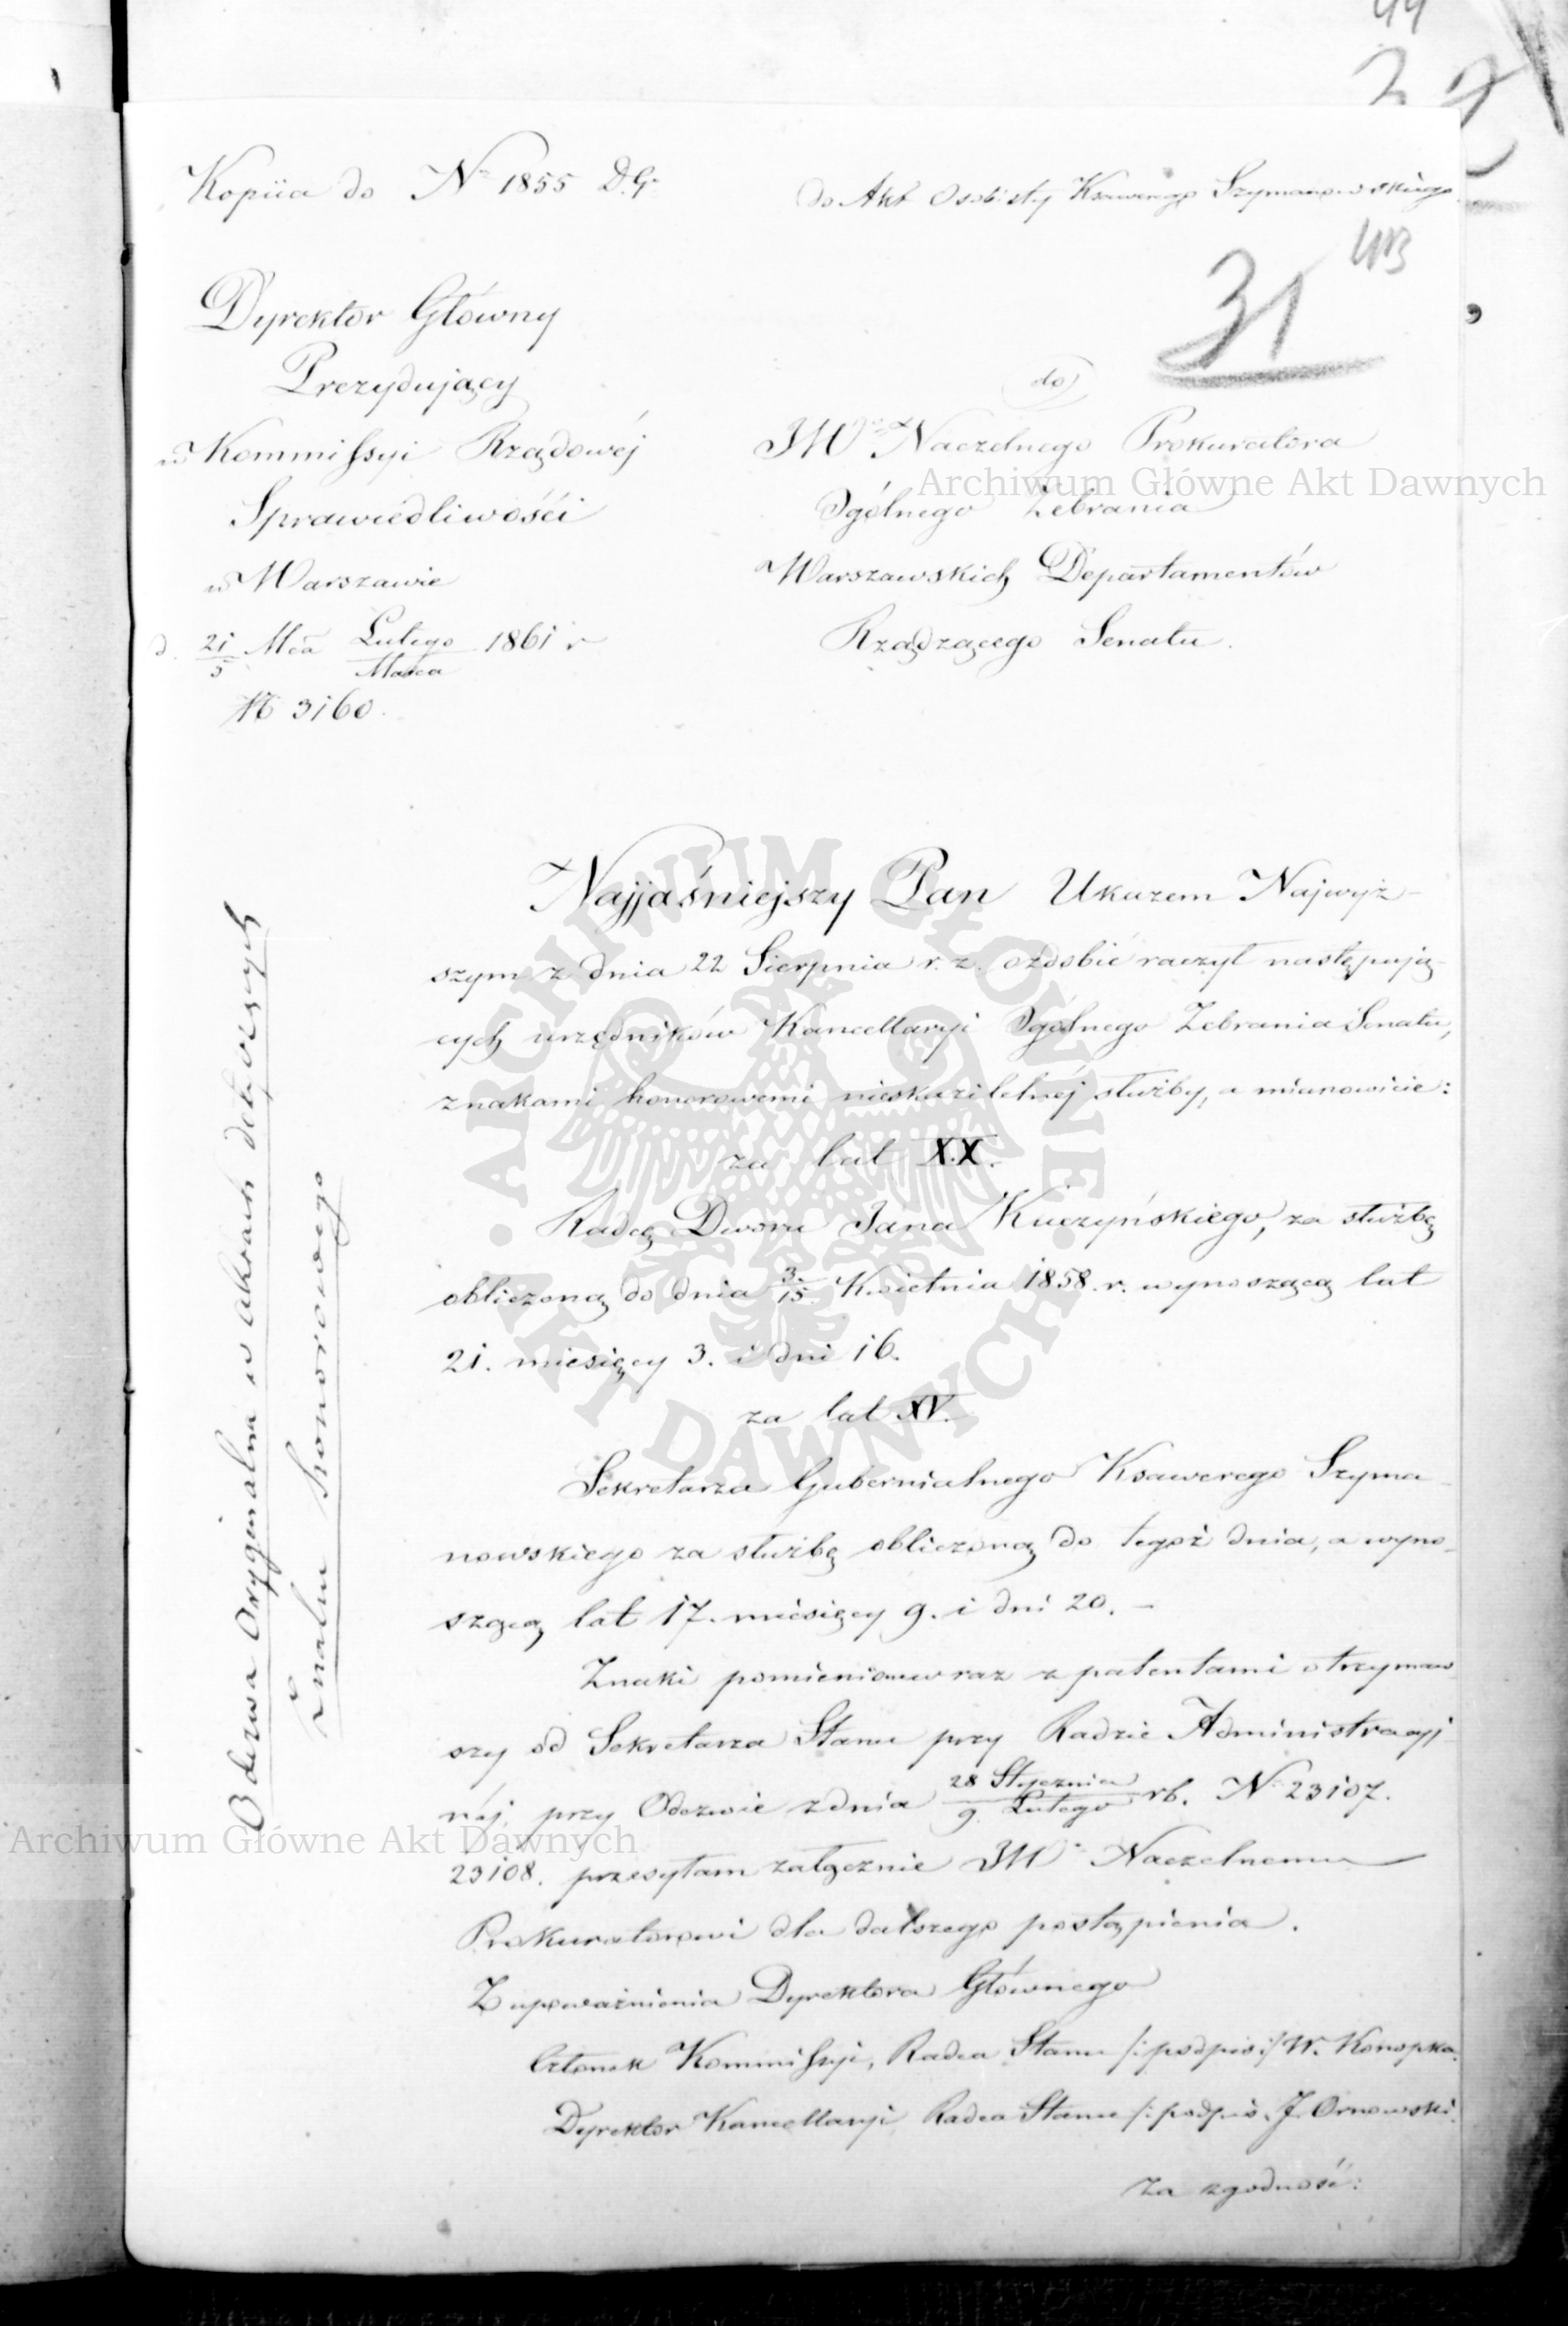 44
2
Kopiia do Nº 1855 D.G.
do Akt Osobisty Ksawerego Szymanowskiego
413
31
Dyrektor Główny
Prezydujący
w Kommissyi Rządowéj
Sprawiedliwości
w Warszawie
d. 21/5 Mca Lutego/Marca 1861 r
№ 3160.
do
JWº Naczelnego Prokuratora
Ogólnego Zebrania
Warszawskich Departamentów
Rządzącego Senatu.
Najjaśniejszy Pan Ukazem Najwyż-
szym z dnia 22 Sierpnia r. z. ozdobić raczył następują-
cych urzędników Kancellaryi Ogólnego Zebrania Senatu,
znakami honorowemi nieskazitelnéj służby, a mianowicie:
za lat XX.
Radcę Dworu Jana Kuczyńskiego, za służbę
obliczoną do dnia 3/15 Kwietnia 1858 r. wynoszącą lat
21. miesięcy 3. i dni 16.
za lat XV.
Sekretarza Gubernialnego Ksawerego Szyma-
nowskiego za służbę obliczoną do tegoż dnia, a wyno-
szącą lat 17. miesięcy 9. i dni 20. -
Znaki pomienione wraz z patentami otrzymaw
szy od Sekretarza Stanu przy Radzie Administracyj
néj, przy Odezwie z dnia 28 Stycznia/9 Lutego rb. Nº 23107.
23108. przesyłam załącznie JWº Naczelnemu
Prokuratorowi dla dalszego postąpienia.
Z upoważnienia Dyrektora Głównego
Członek Kommissyi, Radca Stanu /:podpis:/ W. Konopka.
Dyrektor Kancellaryi Radca Stanu /:podpis. J. Ornowski.
Za zgodność:
Odezwa Oryginalna w aktach dotyczących
Znaku honorowego
Archiwum Główne Akt Dawnych
ARCHIWUM GŁÓWNE · AKT DAWNYCH ·
Archiwum Główne Akt Dawnych